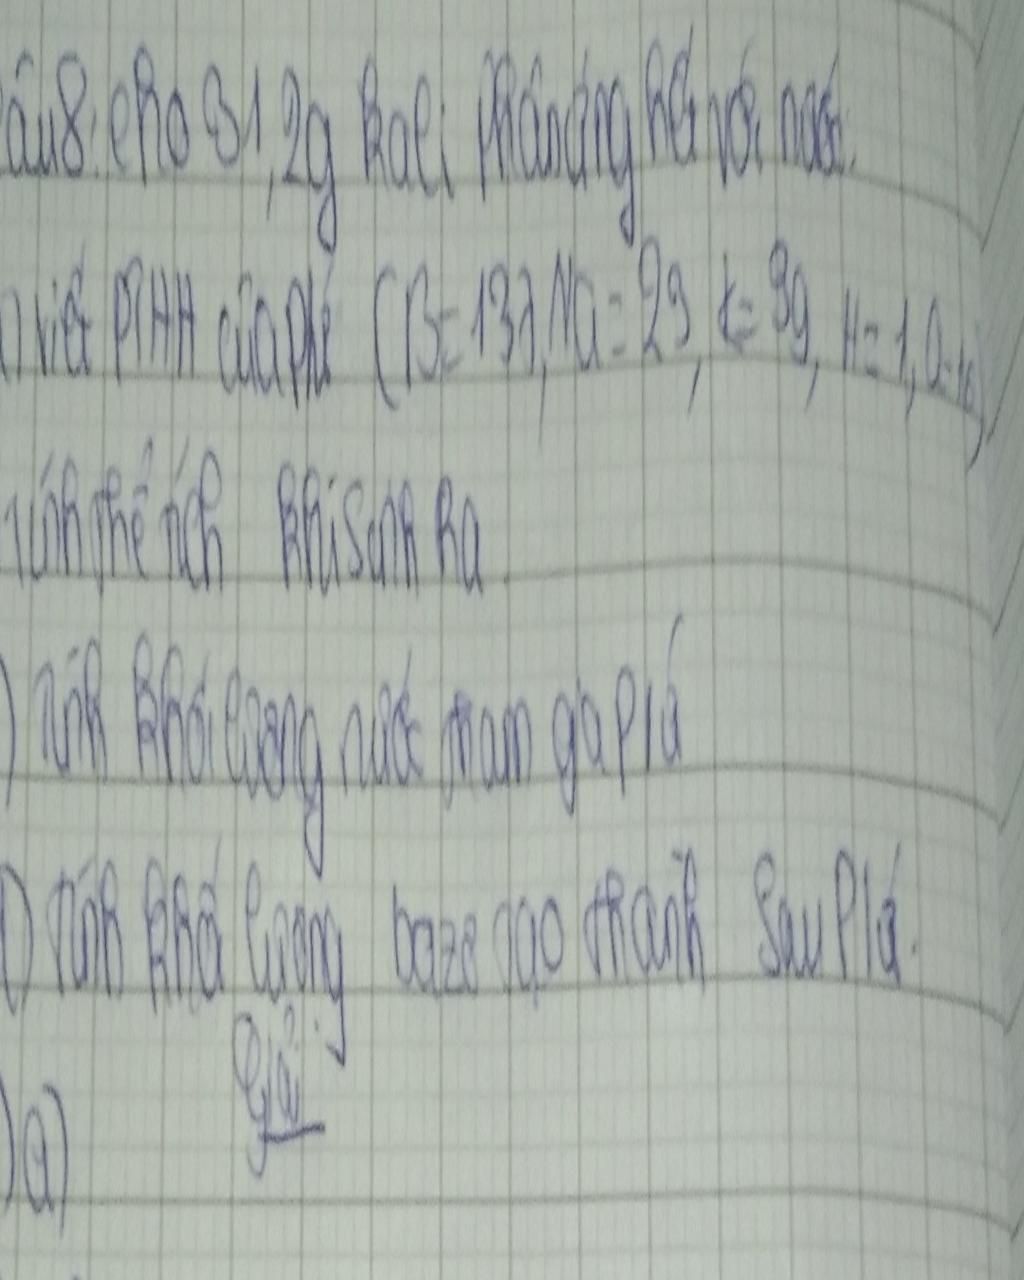 âu 8: Cho 31,2g kali phản ứng hết với nước.
) viết PTHH của pứ (B= 137, Na = 23, K= 39, H= 1, O=16)
Tính thể tích khí sinh ra
) Tính khối lượng nước tham gia pứ
) Tính khối lượng bazơ tạo thành sau pứ.
Giải
) a)